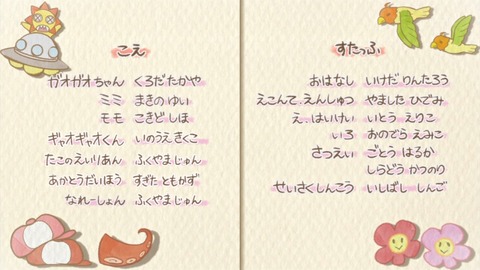 こえ
ガオガオちゃん くろだ たかや
ミミ まきの ゆい
モモ こきど しほ
ギャオギャオくん いのうえ きくこ
たこのえいりあん ふくやま じゅん
あかとうだいほう すぎた ともかず
なれーしょん ふくやま じゅん
すたっふ
おはなし いけだ りんたろう
えこんて、えんしゅつ やました ひでみ
え、はいけい いとう えりこ
いろ おのでら えみこ
さつえい ごとう はるか
しらどう かつのり
せいさくしんこう いしばし しんご